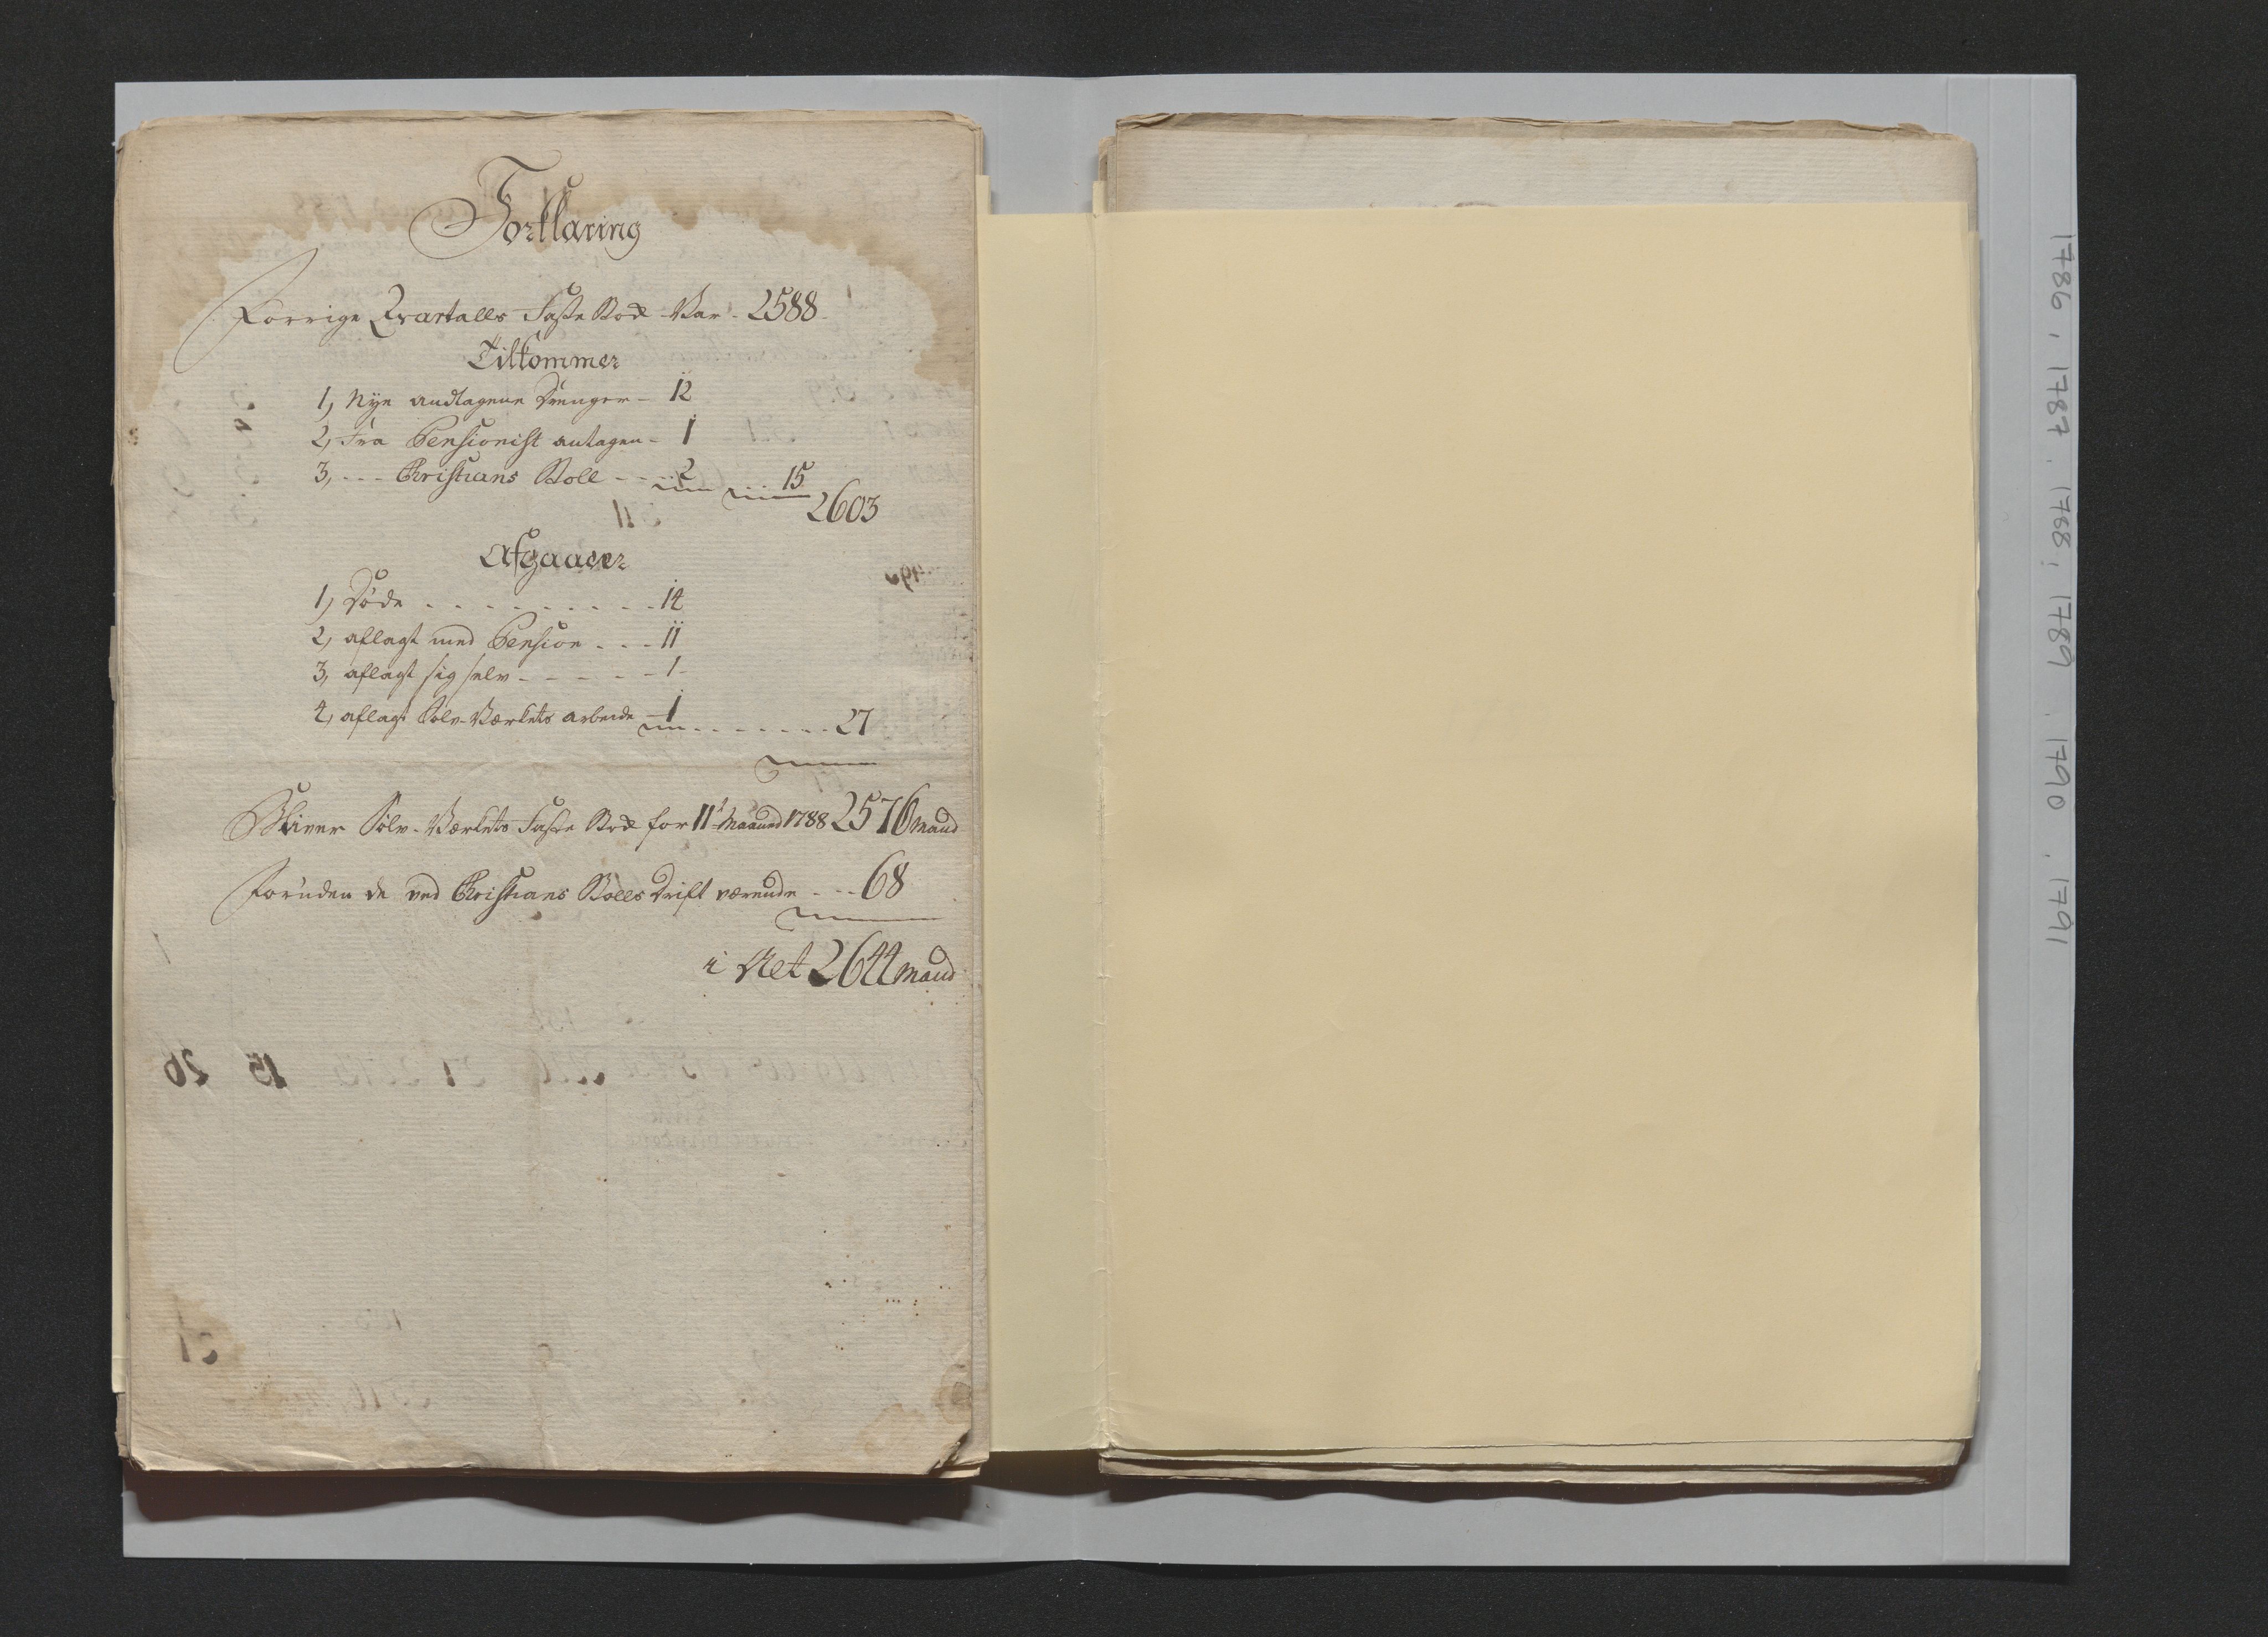 Forklaring
Forrige Qvartalls Faste Stok Var - 2588
Tilkommer
1, Nÿe andtagene Drenger - 12
2, Fra Pensionist antagen - 1
3, - - - Christians Stoll - - - 2 15
2603
Afgaaer
1, Døde - - - - - - - - - 14
2, aflagt med Pension - - - 11
3, aflagt sig selv - - - - - 1
4, aflagt Sølv-Værkets arbeide - 1 - - - - - - - 27
Bliver Sølv-Værkets Faste Stok for 11t Maaned 1788 2576 mand
foruden de ved Christians Stolls Drift værende - - - 68
i Alt 2644 mand
1786, 1787. 1788, 1789. 1790. 1791